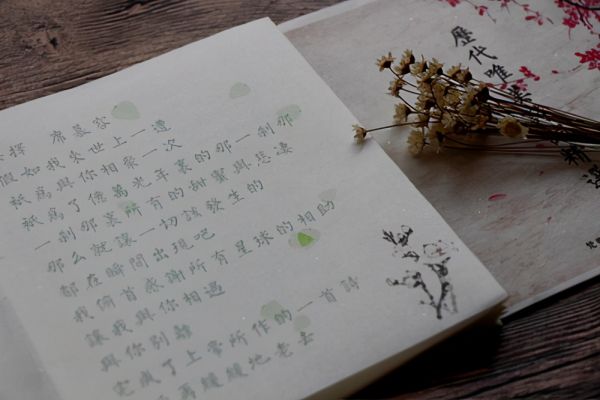 擇 席慕容
假如我來世上一遭
祇為與你相聚一次
祇為了億萬光年裏的那一剎那
一剎那裏所有的甜蜜與悲淒
那么就讓一切該發生的
都在瞬間出現吧
我俯首感謝所有星球的相助
讓我與你相遇
與你別離
完成了上帝所作的一首詩
再緩緩地老去
歷代唯美